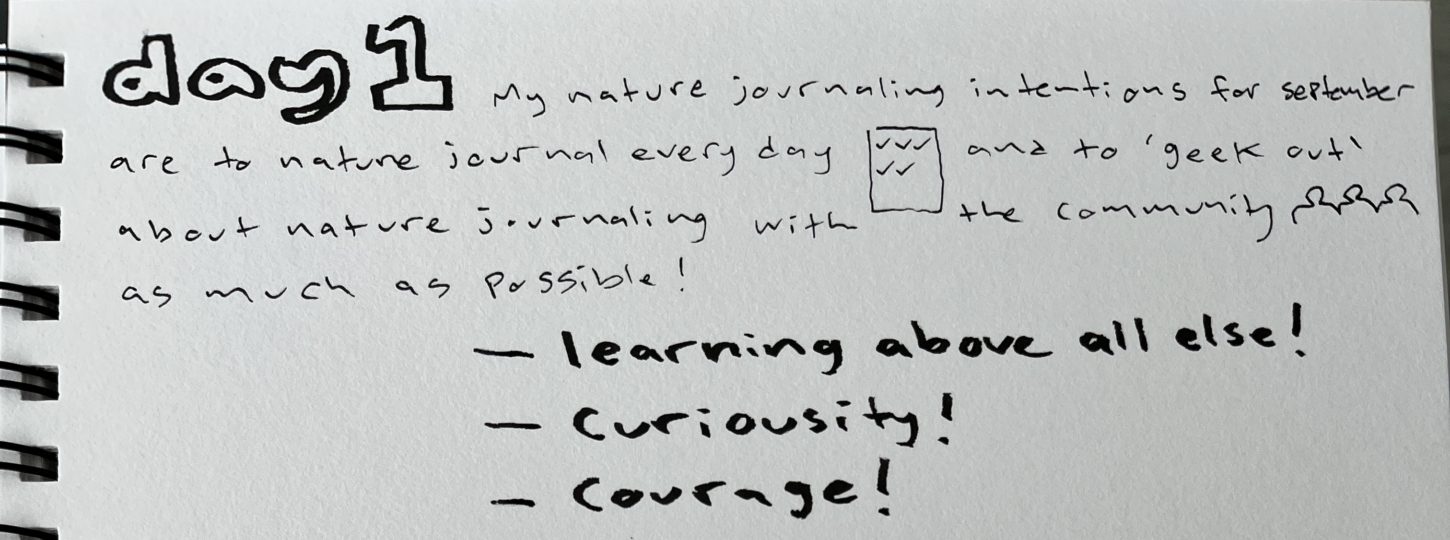 day 1 My nature journaling intentions for september
are to nature journal every day and to 'geek out'
about nature journaling with the community
as much as possible!
— learning above all else!
— Curiousity!
— Courage!